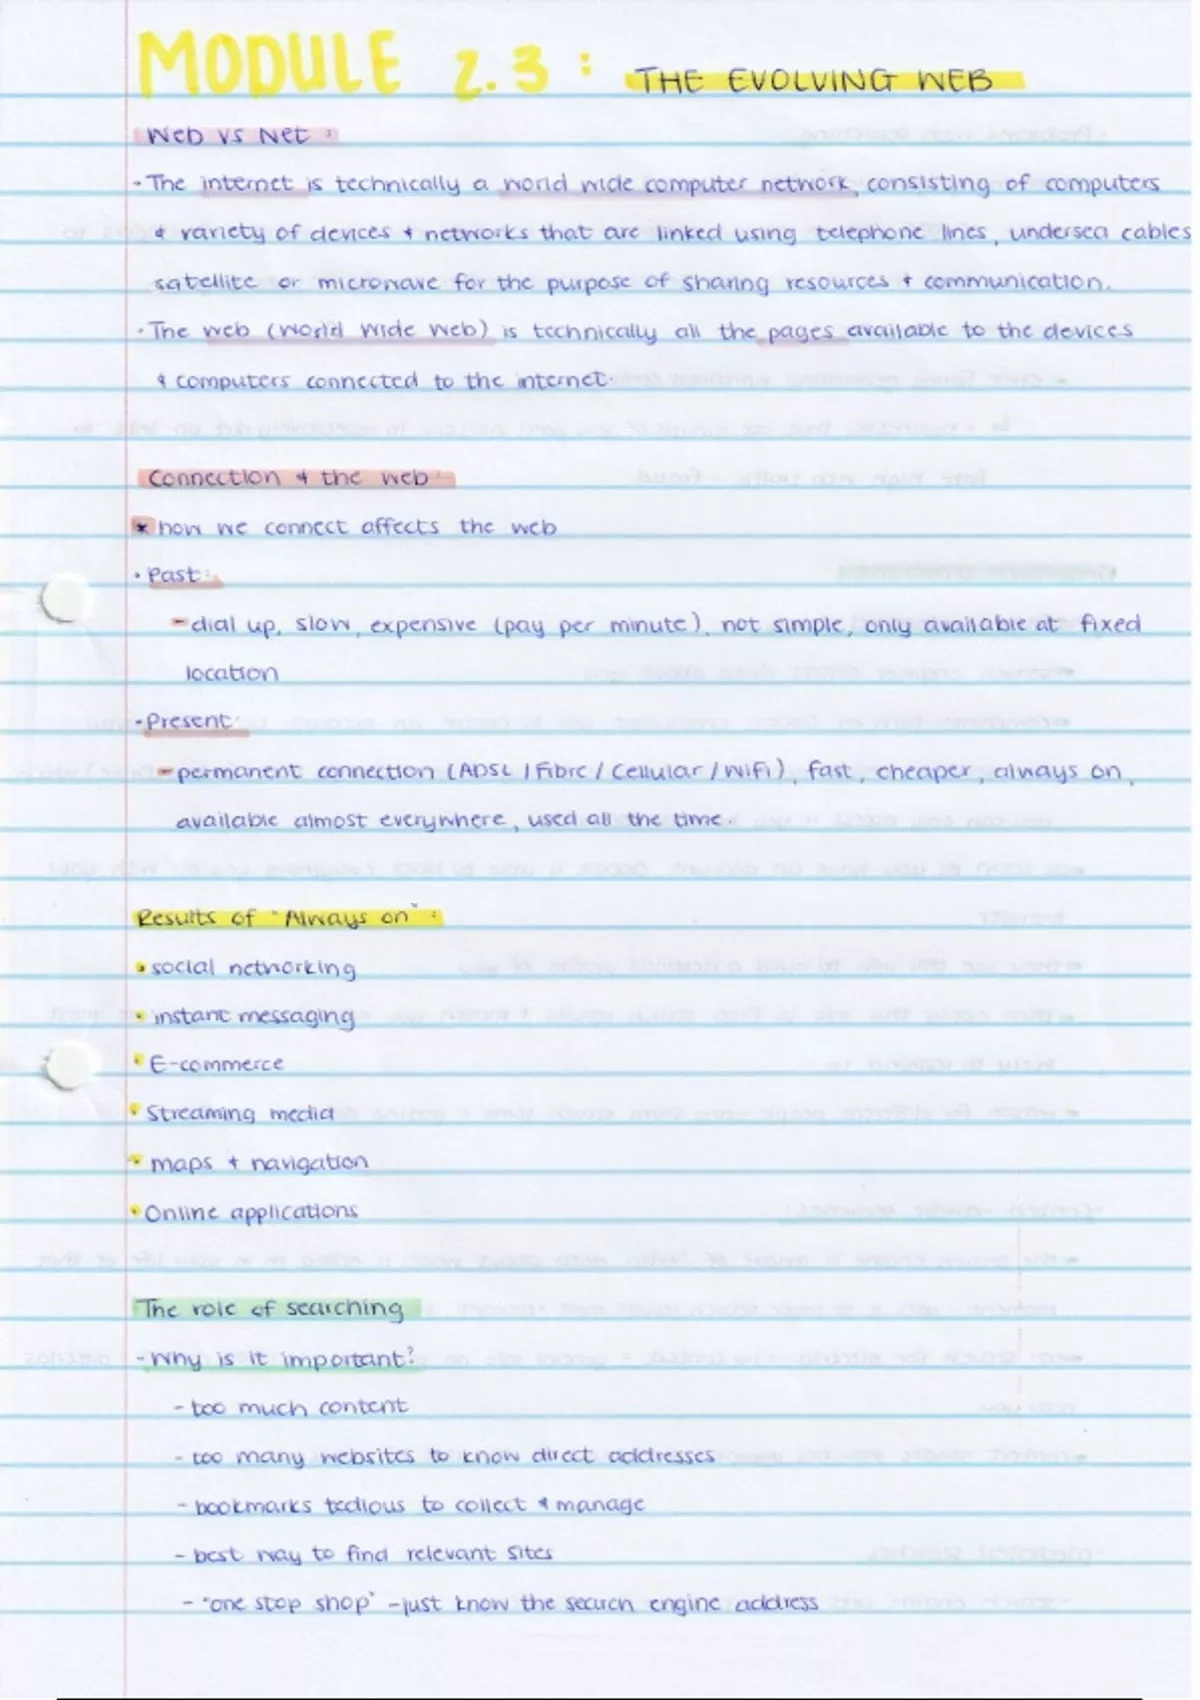 MODULE 2.3 : THE EVOLVING WEB
Web vs Net :
· The internet is technically a world wide computer network, consisting of computers
& variety of devices + networks that are linked using telephone lines, undersea cables
satellite or microwave for the purpose of sharing resources + communication.
· The web (world wide web) is technically all the pages available to the devices
& computers connected to the internet.
Connection & the web :
* how we connect affects the web
· Past :
- dial up, slow, expensive (pay per minute), not simple, only available at fixed
location
· Present :
- permanent connection (ADSL / Fibre / Cellular / WiFi), fast, cheaper, always on,
available almost everywhere, used all the time.
Results of "Always on" :
· social networking
· instant messaging
· E-commerce
· Streaming media
· maps + navigation
· Online applications
The role of searching
- Why is it important?
- too much content
- too many websites to know direct addresses
- bookmarks tedious to collect & manage
- best way to find relevant sites
- "one stop shop" - just know the search engine address